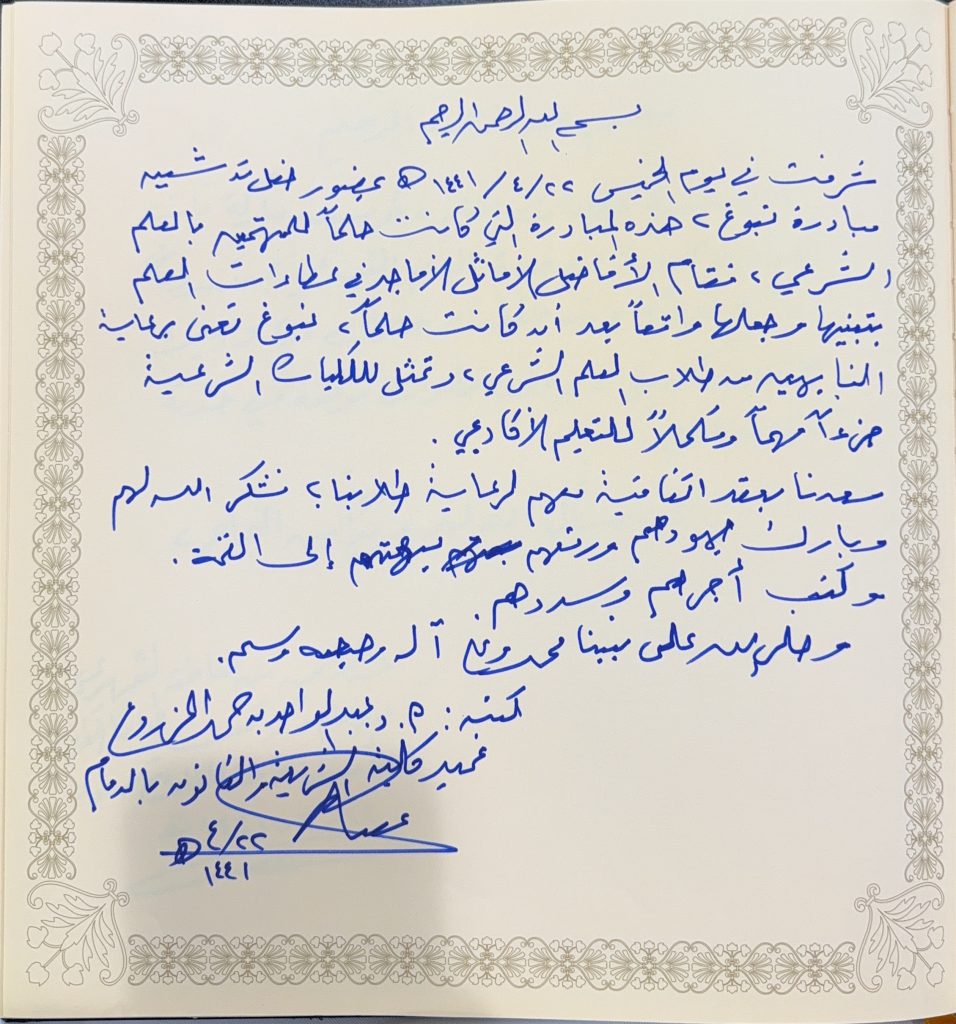 بسم الله الرحمن الرحيم
شرفت في يوم الخميس ٢٢/٤/١٤٤١هـ بحضور حفل تدشين
مبادرة نبوغ، هذه المبادرة التي كانت حلماً للمهتمين بالعلم
الشرعي، فقام الأفاضل الأماثل الأماجد في عطاءات العلم
بتبنيها وجعلها واقعاً بعد أن كانت حلماً، نبوغ تعنى برعاية
النابهين من طلاب العلم الشرعي، وتمثل للكليات الشرعية
جزءاً مهماً ومكملاً للتعليم الأكاديمي.
سعدنا بعقد اتفاقية معهم لرعاية طلابنا، فشكر الله لهم
وبارك جهودهم ورفعهم بهمتهم إلى القمة.
وكتب أجرهم وسددهم.
وصلى الله على نبينا محمد وعلى آله وصحبه وسلم.
كتبه: أ.د عبدالواحد بن حمد المزروع
عميد كلية الشريعة والقانون بالدمام
٢٢/٤
١٤٤١هـ